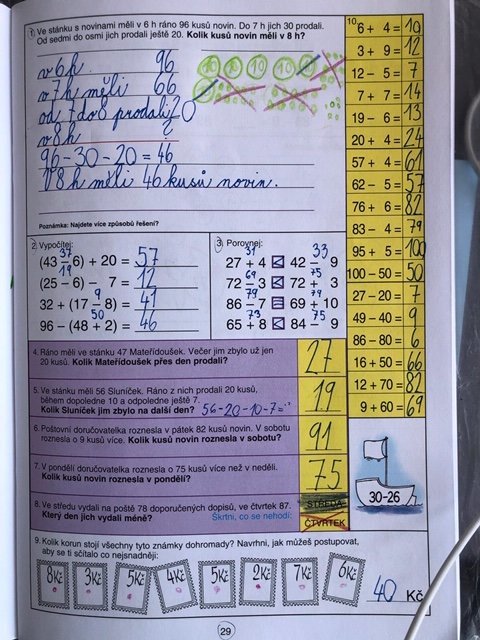 1. Ve stánku s novinami měli v 6 h ráno 96 kusů novin. Do 7 h jich 30 prodali.
Od sedmi do osmi jich prodali ještě 20. Kolik kusů novin měli v 8 h?
v 6 h 96
v 7 h měli 66
od 7 do 8 prodali 20
v 8 h ?
96 - 30 - 20 = 46
V 8 h měli 46 kusů novin.
Poznámka: Najdete více způsobů řešení?
2. Vypočítej:
37
(43 - 6) + 20 = 57
19
(25 - 6) - 7 = 12
9
32 + (17 - 8) = 41
50
96 - (48 + 2) = 46
3. Porovnej:
31 33
27 + 4 < 42 - 9
69 75
72 - 3 < 72 + 3
79 79
86 - 7 = 69 + 10
73 75
65 + 8 < 84 - 9
4. Ráno měli ve stánku 47 Mateřídoušek. Večer jim zbylo už jen
20 kusů. Kolik Mateřídoušek přes den prodali?
27
5. Ve stánku měli 56 Sluníček. Ráno z nich prodali 20 kusů,
během dopoledne 10 a odpoledne ještě 7.
Kolik Sluníček jim zbylo na další den? 56-20-10-7=
19
6. Poštovní doručovatelka roznesla v pátek 82 kusů novin. V sobotu
roznesla o 9 kusů více. Kolik novin roznesla v sobotu?
91
7. V pondělí doručovatelka roznesla o 75 kusů více než v neděli.
Kolik kusů novin roznesla v pondělí?
75
8. Ve středu vydali na poště 78 doporučených dopisů, ve čtvrtek 87.
Který den jich vydali méně? Škrtni, co se nehodí:
STŘEDA
ČTVRTEK
9. Kolik korun stojí všechny tyto známky dohromady? Navrhni, jak můžeš postupovat,
aby se ti sčítalo co nejsnadněji:
8Kč 3Kč 5Kč 4Kč 5Kč 2Kč 7Kč 6Kč
40 Kč
10. 6 + 4 = 10
3 + 9 = 12
12 - 5 = 7
7 + 7 = 14
19 - 6 = 13
20 + 4 = 24
57 + 4 = 61
62 - 5 = 57
76 + 6 = 82
83 - 4 = 79
95 + 5 = 100
100 - 50 = 50
27 - 20 = 7
49 - 40 = 9
86 - 80 = 6
16 + 50 = 66
12 + 70 = 82
9 + 60 = 69
30-26
29